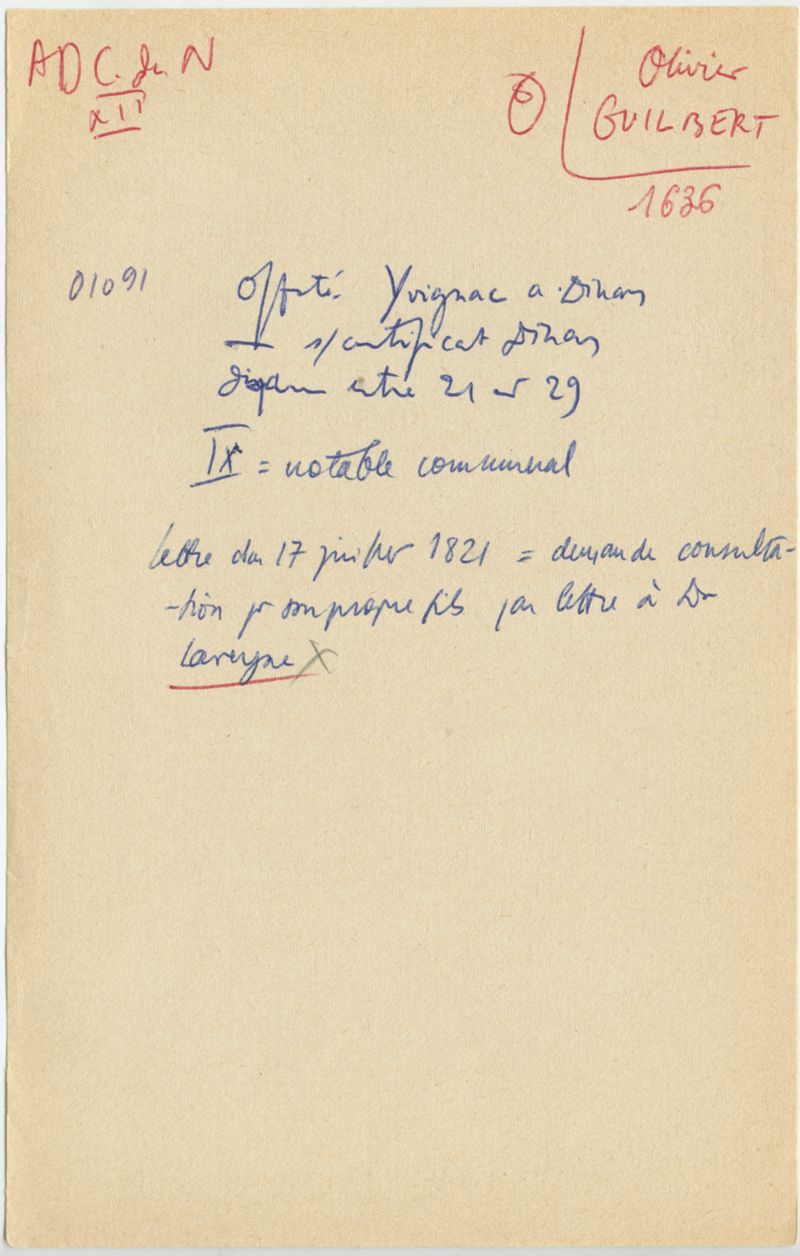 AD C. du N
XII
Olivier
GUILBERT
1636
01091
Off. santé. Yvignac a Dinan
s/ certificat Dinan
disparu entre 21 et 29
IX = notable communal
lettre du 17 juillet 1821 = demande consulta-
-tion pr son propre fils par lettre à Dr
Lavergne X